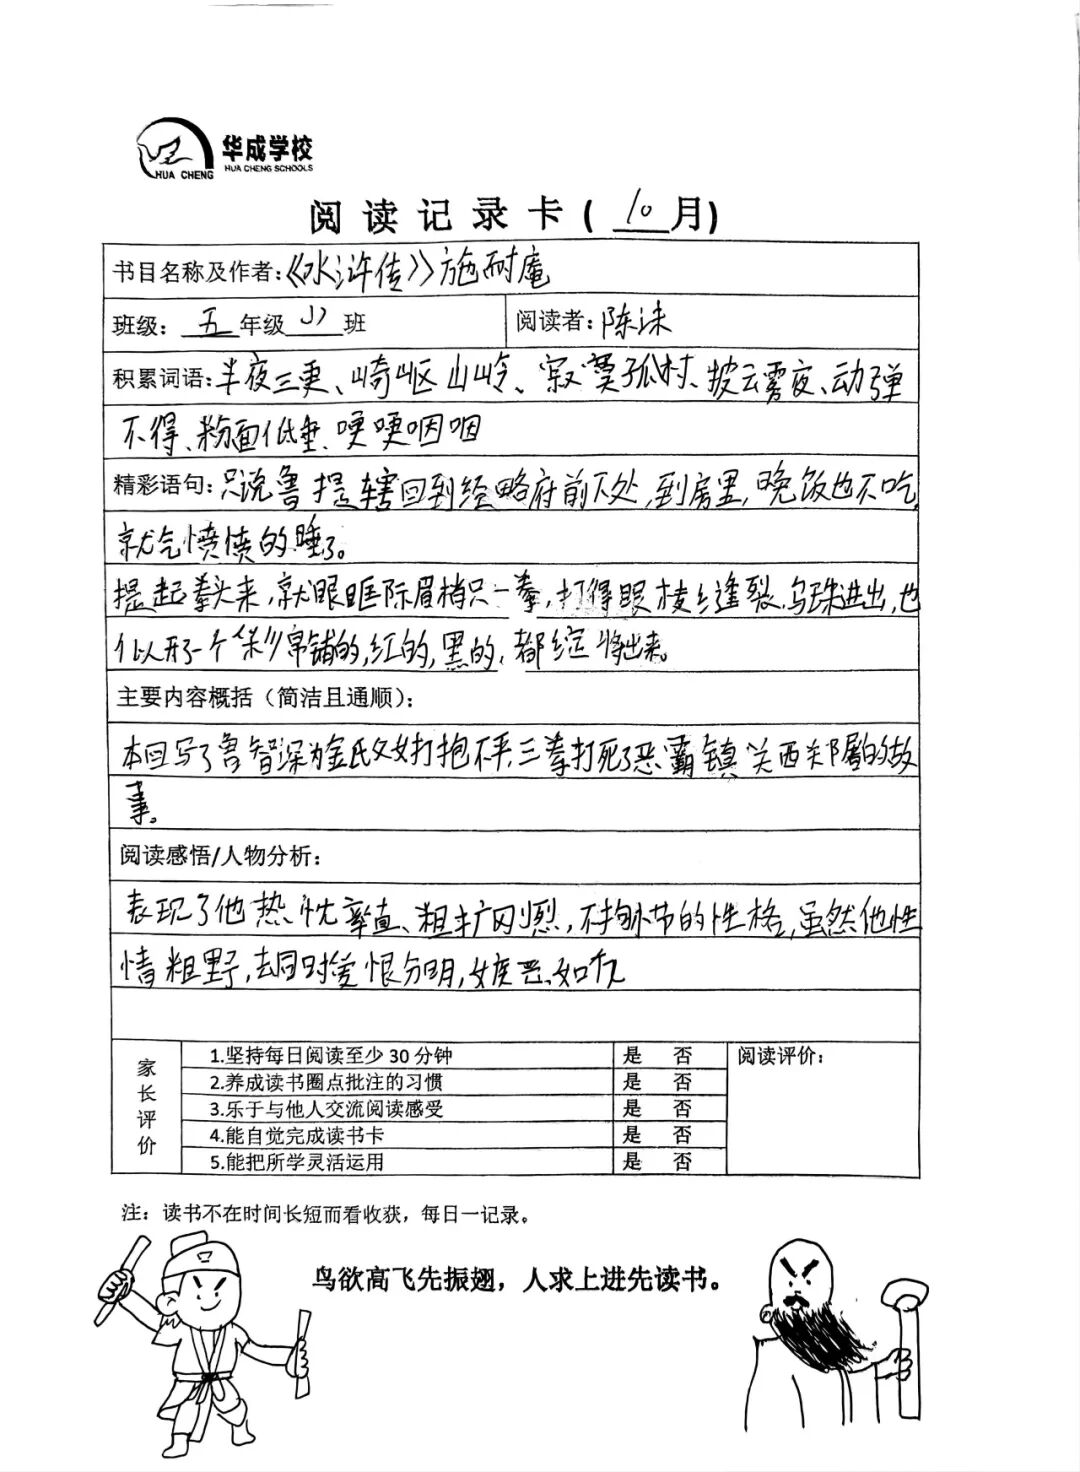 华成学校
HUA CHENG SCHOOLS
HUA CHENG
阅读记录卡(10月)
书目名称及作者:《水浒传》施耐庵
班级:五年级 班
阅读者:陈沫
积累词语:半夜三更、崎岖山岭、寂寞孤村、披云雾夜、动弹
不得、粉面低垂、哽哽咽咽
精彩语句:只说鲁提辖回到经略府前下处,到房里,晚饭也不吃,
就气愤愤的睡了。
提起拳头来,就眼眶际眉梢只一拳,打得眼棱缝裂,乌珠迸出,也
似开了一个彩帛铺的,红的,黑的,都绽将出来。
主要内容概括(简洁且通顺):
本回写了鲁智深为金氏父女打抱不平,三拳打死了恶霸镇关西郑屠的故
事。
阅读感悟/人物分析:
表现了他热忱率直、粗犷刚烈,不拘小节的性格,虽然他性
情粗野,去同时爱恨分明,嫉恶如仇
家长评价
1.坚持每日阅读至少30分钟 是 否
2.养成读书圈点批注的习惯 是 否
3.乐于与他人交流阅读感受 是 否
4.能自觉完成读书卡 是 否
5.能把所学灵活运用 是 否
阅读评价:
注:读书不在时间长短而看收获,每日一记录。
鸟欲高飞先振翅,人求上进先读书。